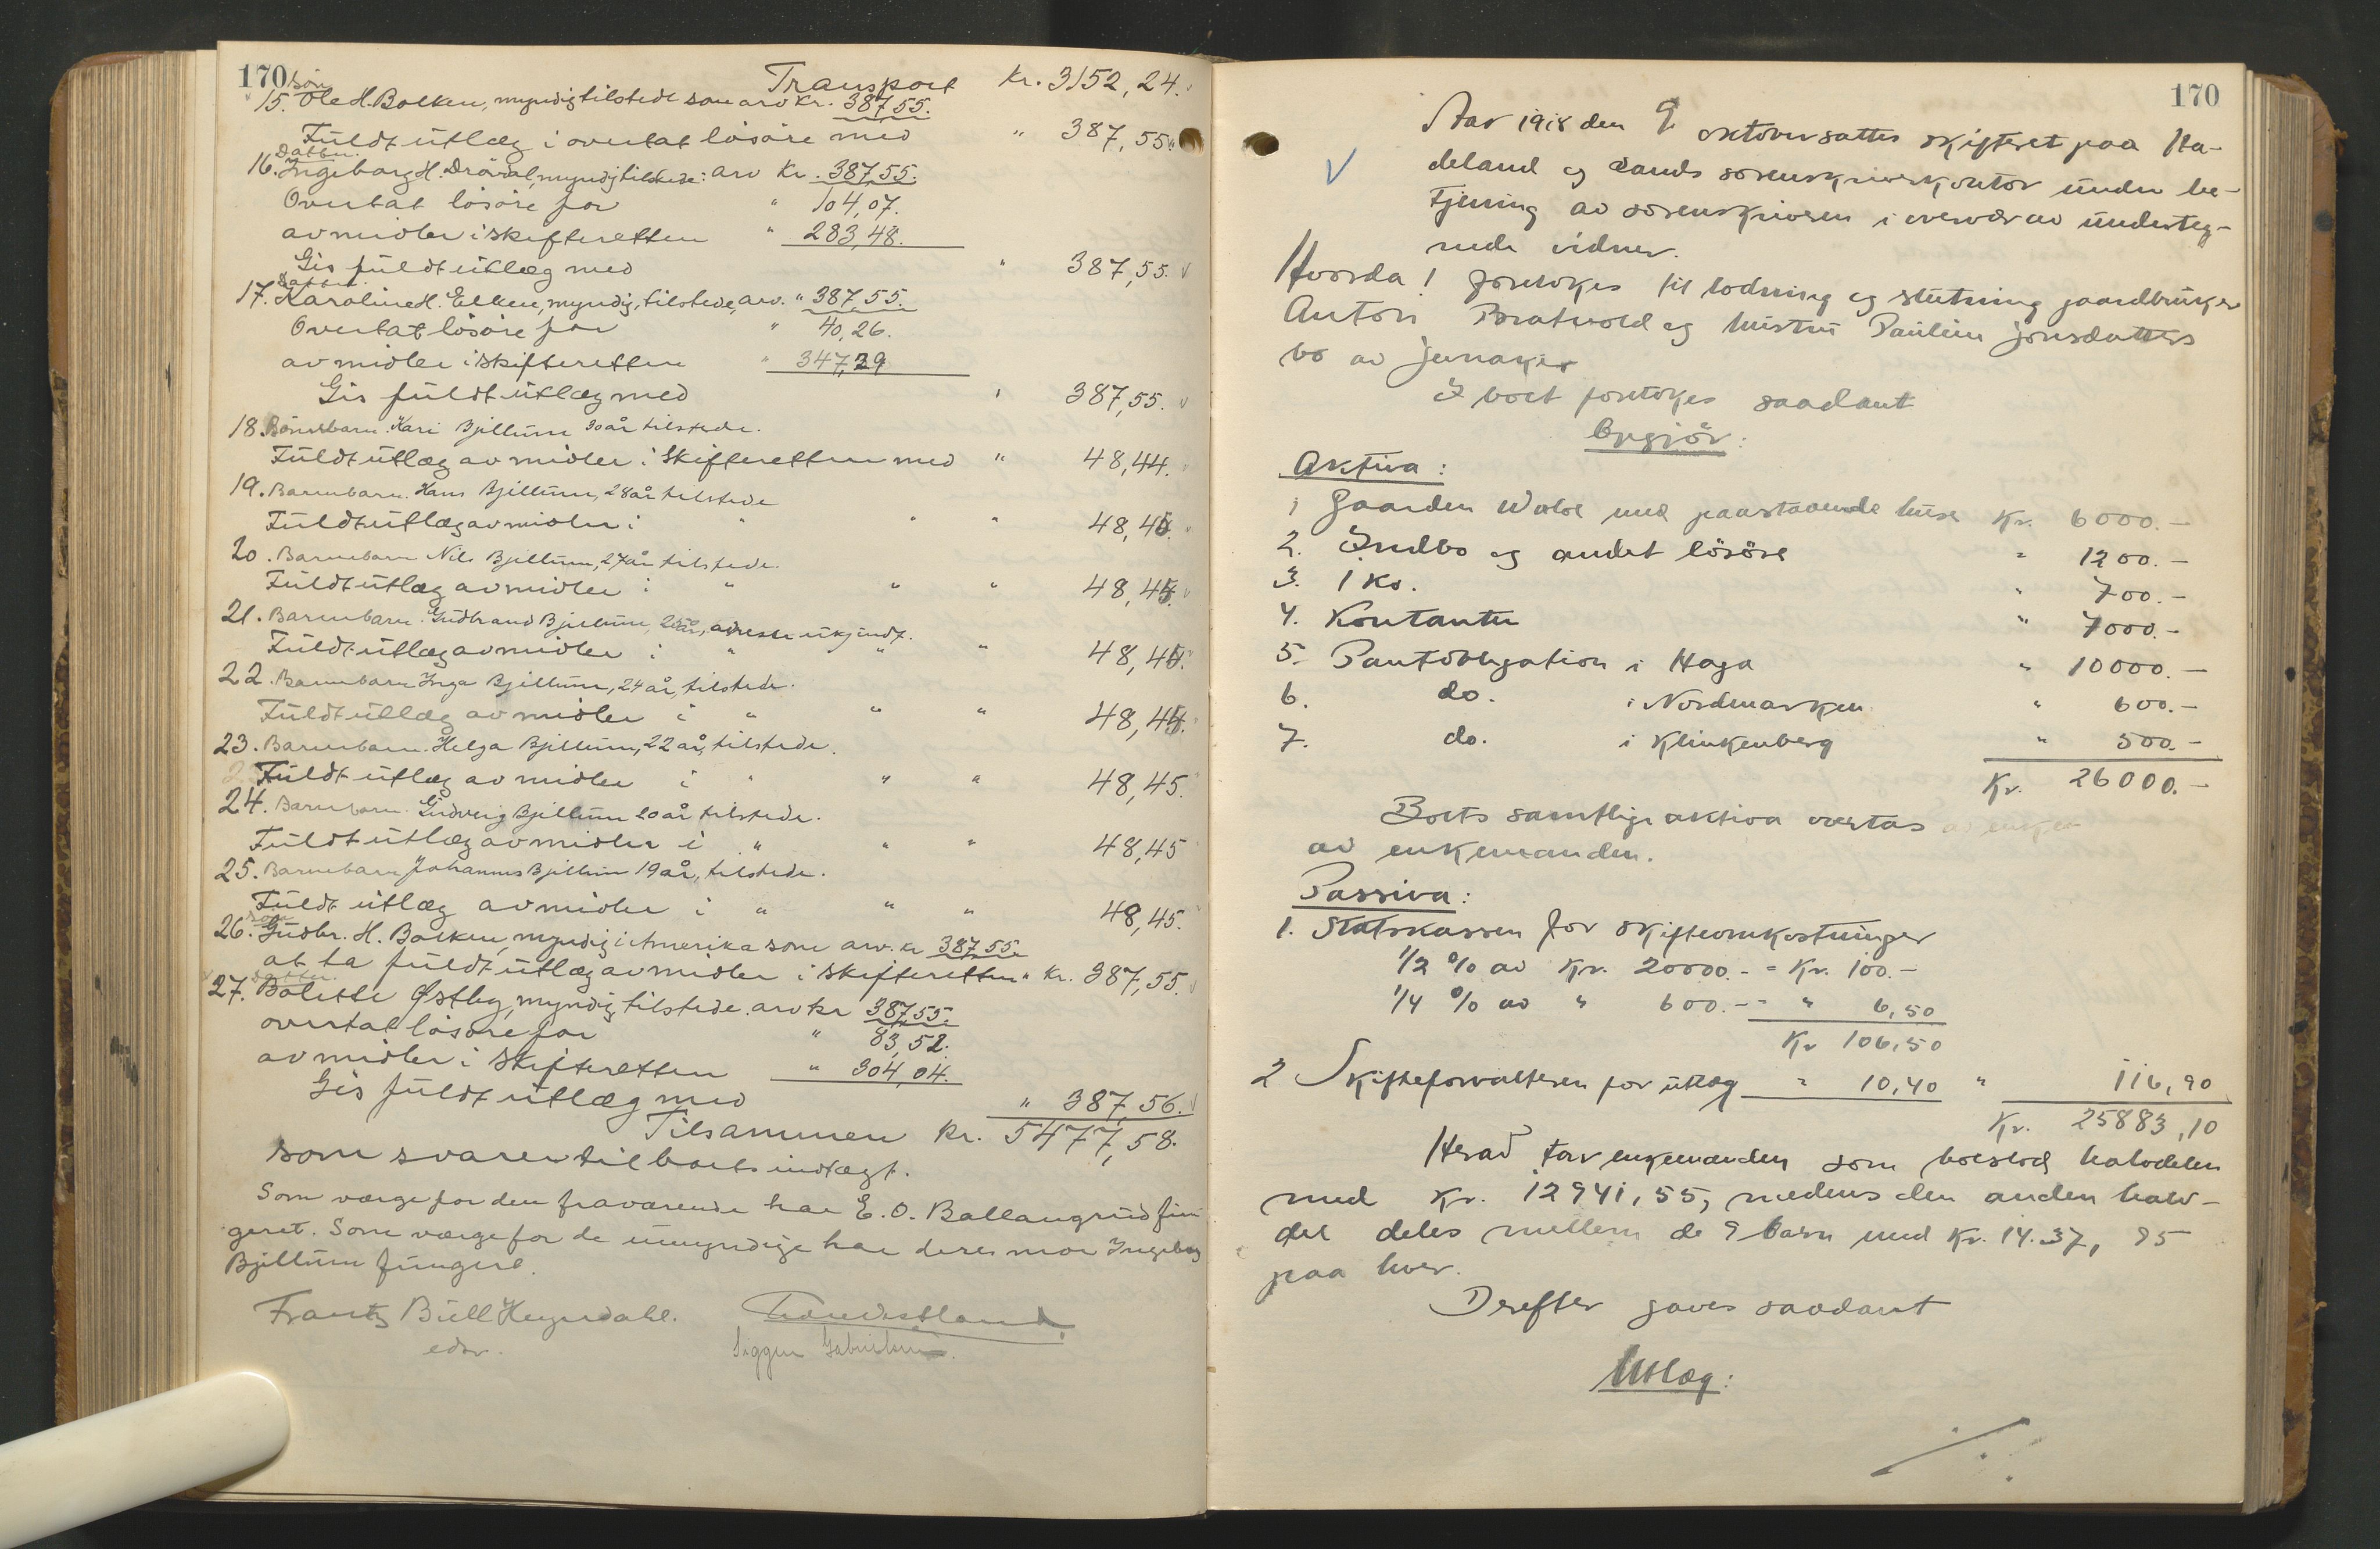 170 Transport Kr. 3152,24.
Søn
15. Ole H. Bolken, myndig tilstede som arv Kr. 387,55.
Fuldt utlæg i overtat løsøre med " 387,55.
Datter.
16. Ingeborg H. Drövdal, myndig tilstede: arv Kr. 387,55.
Overtat løsøre for " 104,07.
av midler i skifteretten " 283,48.
Gis fuldt utlæg med " 387,55.
Datter.
17. Karoline H. Elken, myndig, tilstede, arv. " 387,55.
Overtat løsøre for " 40,26.
av midler i skifteretten " 347,29
Gis fuldt utlæg med " 387,55.
18. Barnebarn. Kari Bjellum 30 år tilstede.
Fuldt utlæg av midler i Skifteretten med " 48,44.
19. Barnebarn. Hans Bjellum, 28 år tilstede
Fuldt utlæg av midler i " " " 48,45.
20. Barnebarn Nils Bjellum, 27 år tilstede.
Fuldt utlæg av midler i " " " 48,45.
21. Barnebarn. Gudbrand Bjellum, 25 år, adresse ukjendt.
Fuldt utlæg av midler i " " " 48,45.
22. Barnebarn Inga Bjellum, 24 år, tilstede.
Fuldt utlæg av midler i " " " 48,45.
23. Barnebarn. Helga Bjellum, 22 år, tilstede.
Fuldt utlæg av midler i " " " 48,45.
24. Barnebarn. Gudveig Bjellum 20 år tilstede.
Fuldt utlæg av midler i " " " 48,45
25. Barnebarn Johannes Bjellum 19 år, tilstede.
Fuldt utlæg av midler i " " " 48,45.
søn
26. Gudbr. H. Bolken, myndig i Amerika som arv. kr 387,55.
at ta fuldt utlæg av midler i skifteretten " Kr. 387,55.
datter.
27. Bolette Østby, myndig tilstede. arv kr 387,55.
overtat løsøre for " 83,52.
av midler i Skifteretten " 304,04.
Gis fuldt utlæg med " 387,56.
Tilsammen kr. 5477,58.
som svarer til boets indtægt.
Som værge for den fraværende har E. O. Ballangrud fun
geret. Som værge for de umyndige har deres mor Ingeborg
Bjellum fungert.
Frantz Bull Heyerdahl.
edsv.
170
Aar 1918 den 9 oktober sattes skifteret paa Ha-
deland og Lands sorenskriverkontor under be-
tjening av sorenskriveren i overvær av underteg-
nede vidner.
Hvorda! foretokes til lodning og slutning gaardbruger
Anton Bratvold og hustru Pauline Jonsdatters
bo av Jevnaker
I boet foretokes saadant
Opgjør:
Aktiva:
1 Gaarden Wold med paastaaende huse Kr. 6000.-
2. Indbo og andet løsøre " 1200.-
3. 1 ko. " 700.-
4. Kontanter " 7000.-
5. Pantobligation i Haga " 10000.-
6. do. i Nordmarken " 600.-
7. do. i Klinkenberg " 500.-
Kr. 26000.-
Boets samtlige aktiva overtas av enken
av enkemanden.
Passiva:
1. Statskassen for skifteomkostninger
1/2 % av Kr. 20000.- = Kr. 100.-
1/4 % av " 600.- - " 6,50
Kr 106,50
2 Skifteforvalteren for utlæg " 10,40 " 116,90
Kr. 25883,10
Herav tar enkemanden som boeslod halvdelen
med Kr. 12941,55, medens den anden halv-
del deles mellem de 9 barn med Kr. 14.37, 95
paa hver.
Derefter gaves saadant
Utlæg: